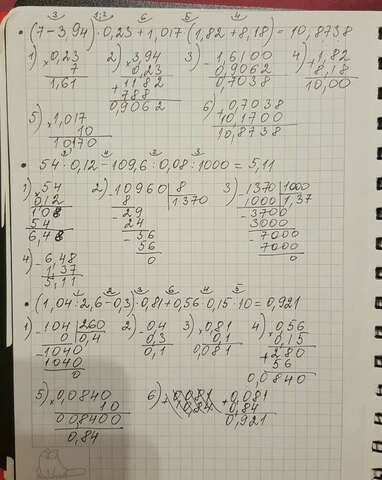 3 1;2 6 5 4
• (7-3,94)·0,23+1,017(1,82+8,18)=10,8738
1) 2) 3) 4)
×0,23 ×3,94 -1,6100 +1,82
7 0,23 0,9062 8,18
1,61 +1182 0,7038 10,00
788
0,9062
5) 6)
×1,017 +0,7038
10 10,1700
10170 10,8738
• 54·0,12-109,6:0,08:1000=5,11
1) ×54 2) -10960 8 3) -1370 1000
0,12 8 1370 1000 1,37
108 -29 -3700
54 24 3000
6,48 -56 -7000
4) -6,48 56 7000
1,37 0 0
5,11
• (1,04:2,6-0,3)·0,81+0,56·0,15·10=0,921
1) -104 260 2) -0,4 3) ×0,81 4) ×0,56
0 0,4 0,3 0,1 0,15
-1040 0,1 0,081 +280
1040 56
0 0,0840
5) ×0,0840 6) +0,081
10 0,84
0,08400 0,921
0,84